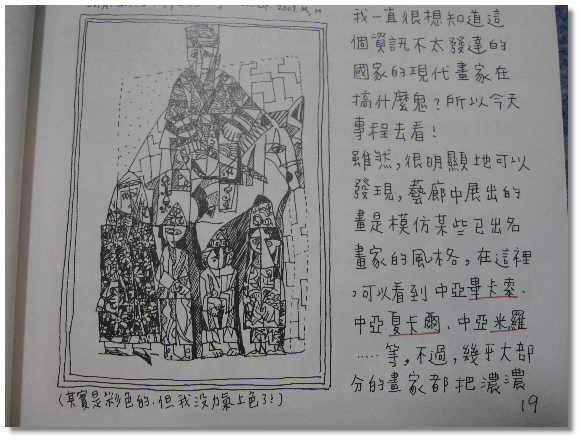 2009.
我一直很想知道這
個資訊不太發達的
國家的現代畫家在
搞什麼鬼？所以今天
專程去看！
雖然，很明顯地可以
發現，藝廊中展出的
畫是模仿某些已出名
畫家的風格，在這裡
，可以看到中亞畢卡索、
中亞夏卡爾、中亞米羅
……等，不過，幾乎大部
分的畫家都把濃濃
(其實是彩色的，但我沒力氣上色了！)
19